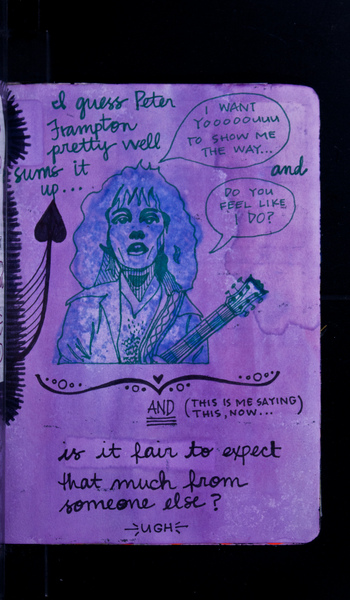 I guess Peter
Frampton
pretty well
sums it
up...
I WANT
YOOOOOUUU
TO SHOW ME
THE WAY...
and
DO YOU
FEEL LIKE
I DO?
AND (THIS IS ME SAYING
THIS, NOW...)
is it fair to expect
that much from
someone else?
UGH